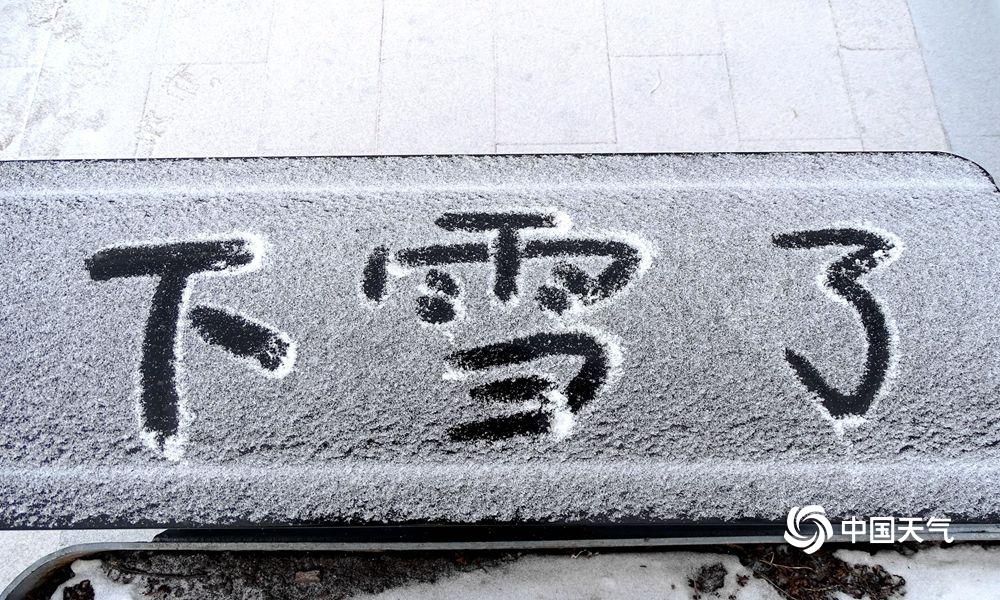 下雪了
中国天气